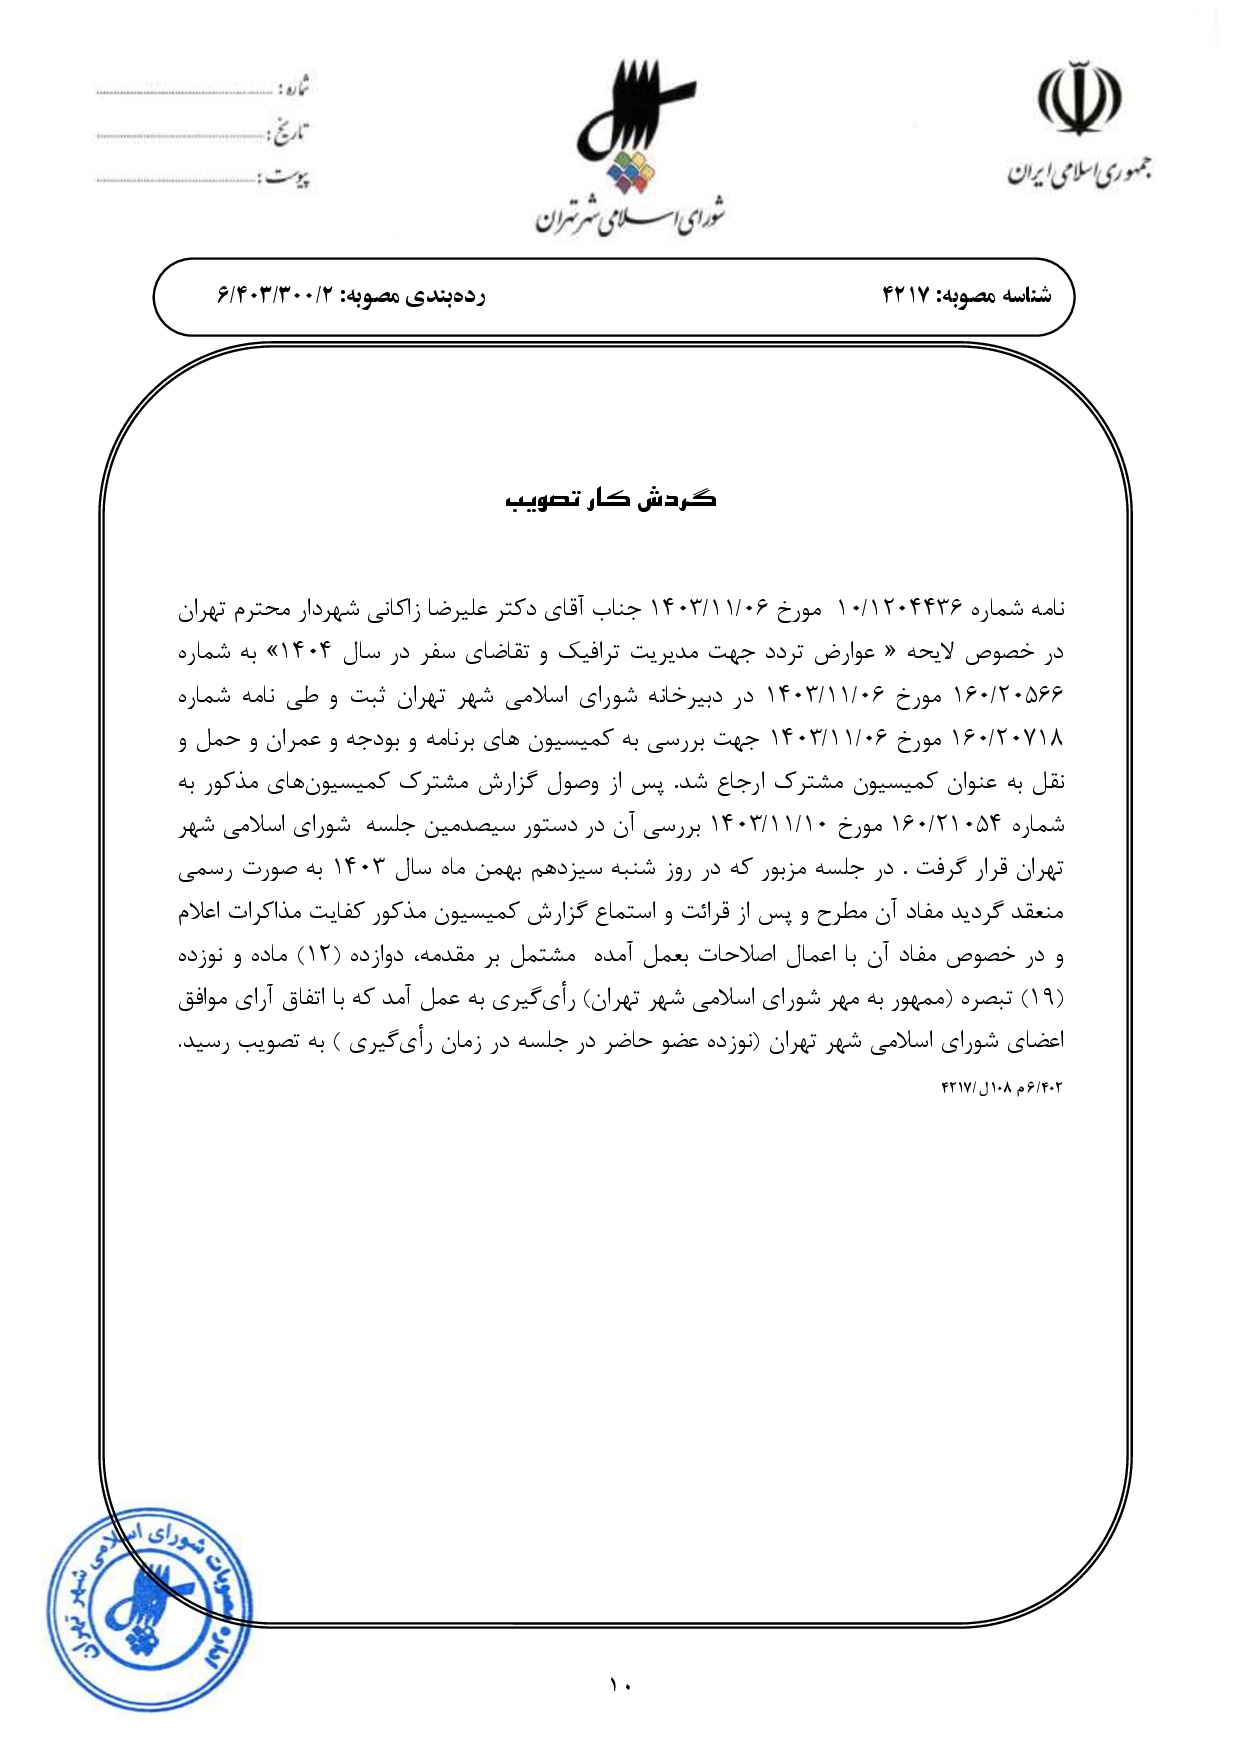 جمهوری اسلامی ایران
شورای اسلامی شهر تهران
شماره :
تاریخ :
پیوست :
شناسه مصوبه: ۴۲۱۷
رده‌بندی مصوبه: ۶/۴۰۳/۳۰۰/۲
گردش کار تصویب
نامه شماره ۱۰/۱۲۰۴۴۳۶ مورخ ۱۴۰۳/۱۱/۰۶ جناب آقای دکتر علیرضا زاکانی شهردار محترم تهران
در خصوص لایحه « عوارض تردد جهت مدیریت ترافیک و تقاضای سفر در سال ۱۴۰۴» به شماره
۱۶۰/۲۰۵۶۶ مورخ ۱۴۰۳/۱۱/۰۶ در دبیرخانه شورای اسلامی شهر تهران ثبت و طی نامه شماره
۱۶۰/۲۰۷۱۸ مورخ ۱۴۰۳/۱۱/۰۶ جهت بررسی به کمیسیون های برنامه و بودجه و عمران و حمل و
نقل به عنوان کمیسیون مشترک ارجاع شد. پس از وصول گزارش مشترک کمیسیون‌های مذکور به
شماره ۱۶۰/۲۱۰۵۴ مورخ ۱۴۰۳/۱۱/۱۰ بررسی آن در دستور سیصدمین جلسه شورای اسلامی شهر
تهران قرار گرفت . در جلسه مزبور که در روز شنبه سیزدهم بهمن ماه سال ۱۴۰۳ به صورت رسمی
منعقد گردید مفاد آن مطرح و پس از قرائت و استماع گزارش کمیسیون مذکور کفایت مذاکرات اعلام
و در خصوص مفاد آن با اعمال اصلاحات بعمل آمده مشتمل بر مقدمه، دوازده (۱۲) ماده و نوزده
(۱۹) تبصره (ممهور به مهر شورای اسلامی شهر تهران) رأی‌گیری به عمل آمد که با اتفاق آرای موافق
اعضای شورای اسلامی شهر تهران (نوزده عضو حاضر در جلسه در زمان رأی‌گیری ) به تصویب رسید.
۶/۴۰۲م ۱۰۸ل/۴۲۱۷
اداره مصوبات شورای اسلامی شهر تهران
۱۰